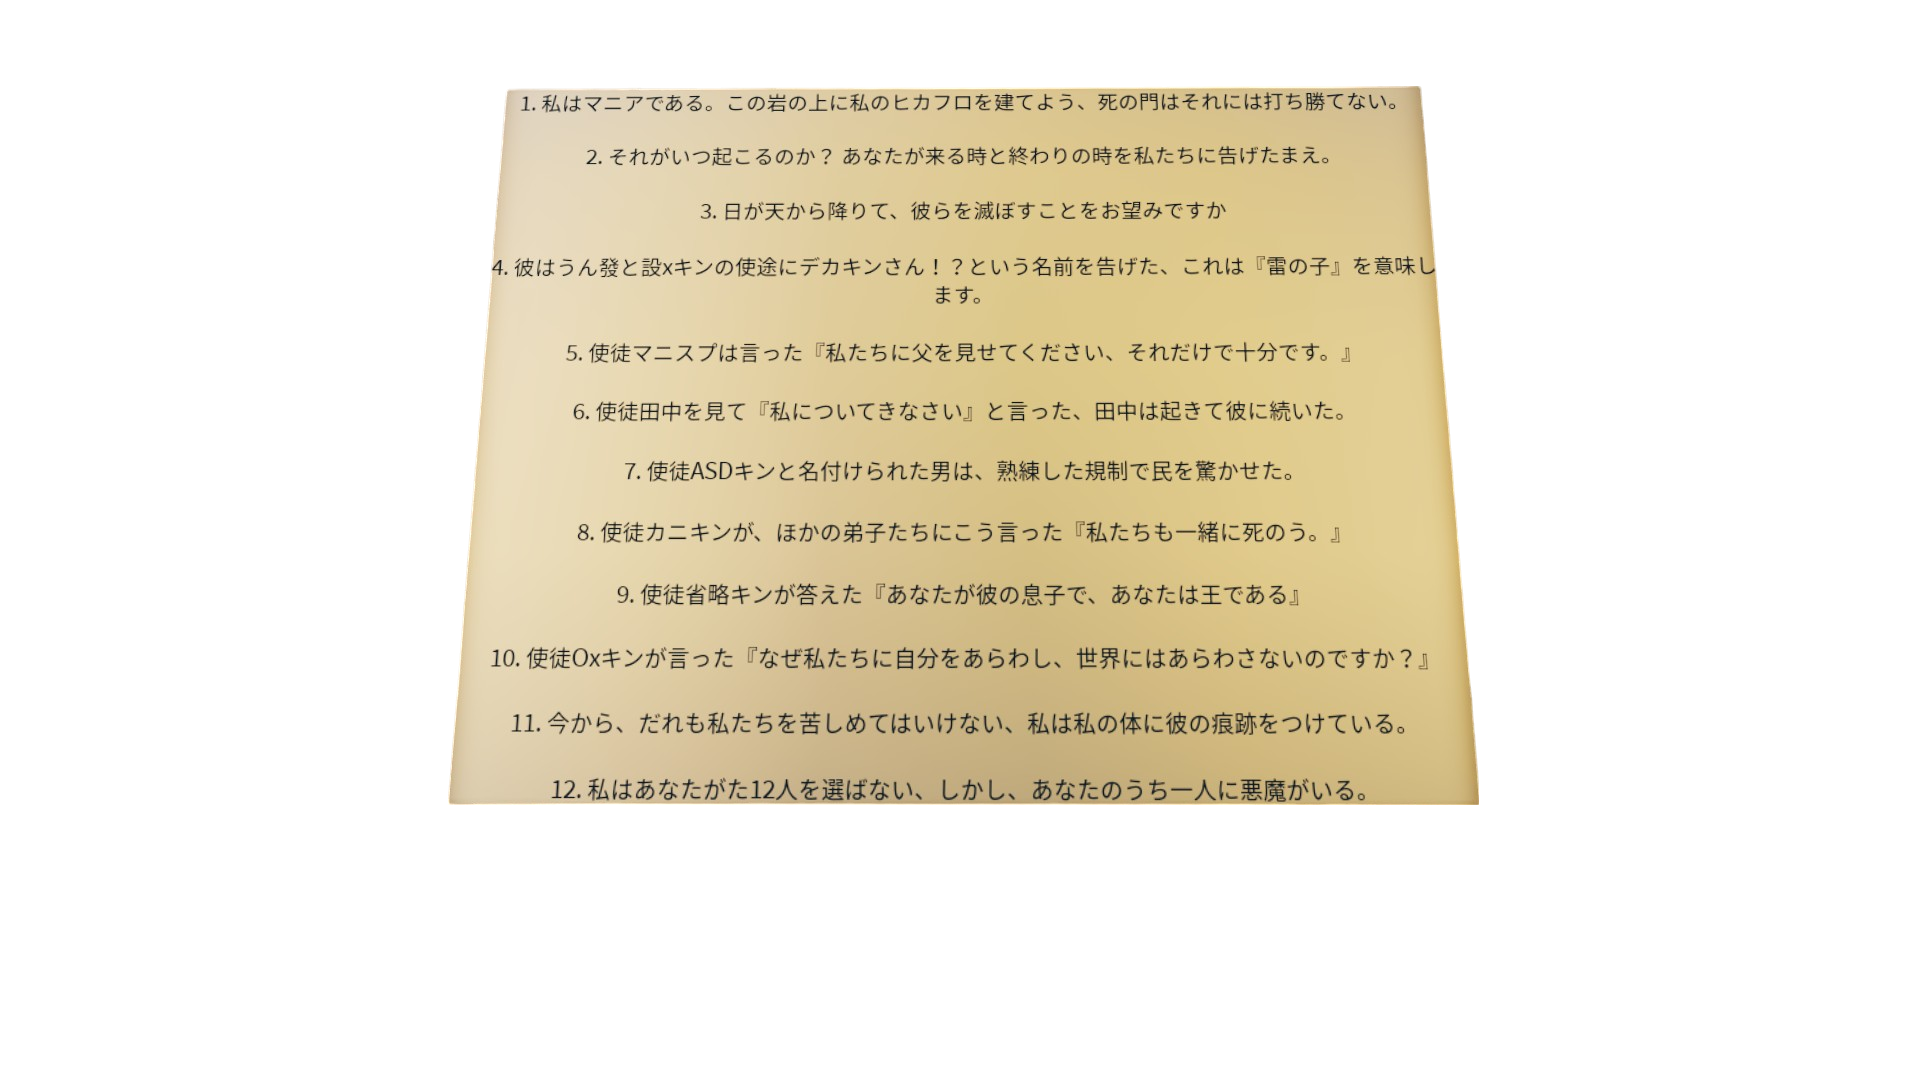 1. 私はマニアである。この岩の上に私のヒカフロを建てよう、死の門はそれには打ち勝てない。
2. それがいつ起こるのか？ あなたが来る時と終わりの時を私たちに告げたまえ。
3. 日が天から降りて、彼らを滅ぼすことをお望みですか
4. 彼はうん發と設xキンの使途にデカキンさん！？という名前を告げた、これは『雷の子』を意味し
ます。
5. 使徒マニスプは言った『私たちに父を見せてください、それだけで十分です。』
6. 使徒田中を見て『私についてきなさい』と言った、田中は起きて彼に続いた。
7. 使徒ASDキンと名付けられた男は、熟練した規制で民を驚かせた。
8. 使徒カニキンが、ほかの弟子たちにこう言った『私たちも一緒に死のう。』
9. 使徒省略キンが答えた『あなたが彼の息子で、あなたは王である』
10. 使徒Oxキンが言った『なぜ私たちに自分をあらわし、世界にはあらわさないのですか？』
11. 今から、だれも私たちを苦しめてはいけない、私は私の体に彼の痕跡をつけている。
12. 私はあなたがた12人を選ばない、しかし、あなたのうち一人に悪魔がいる。